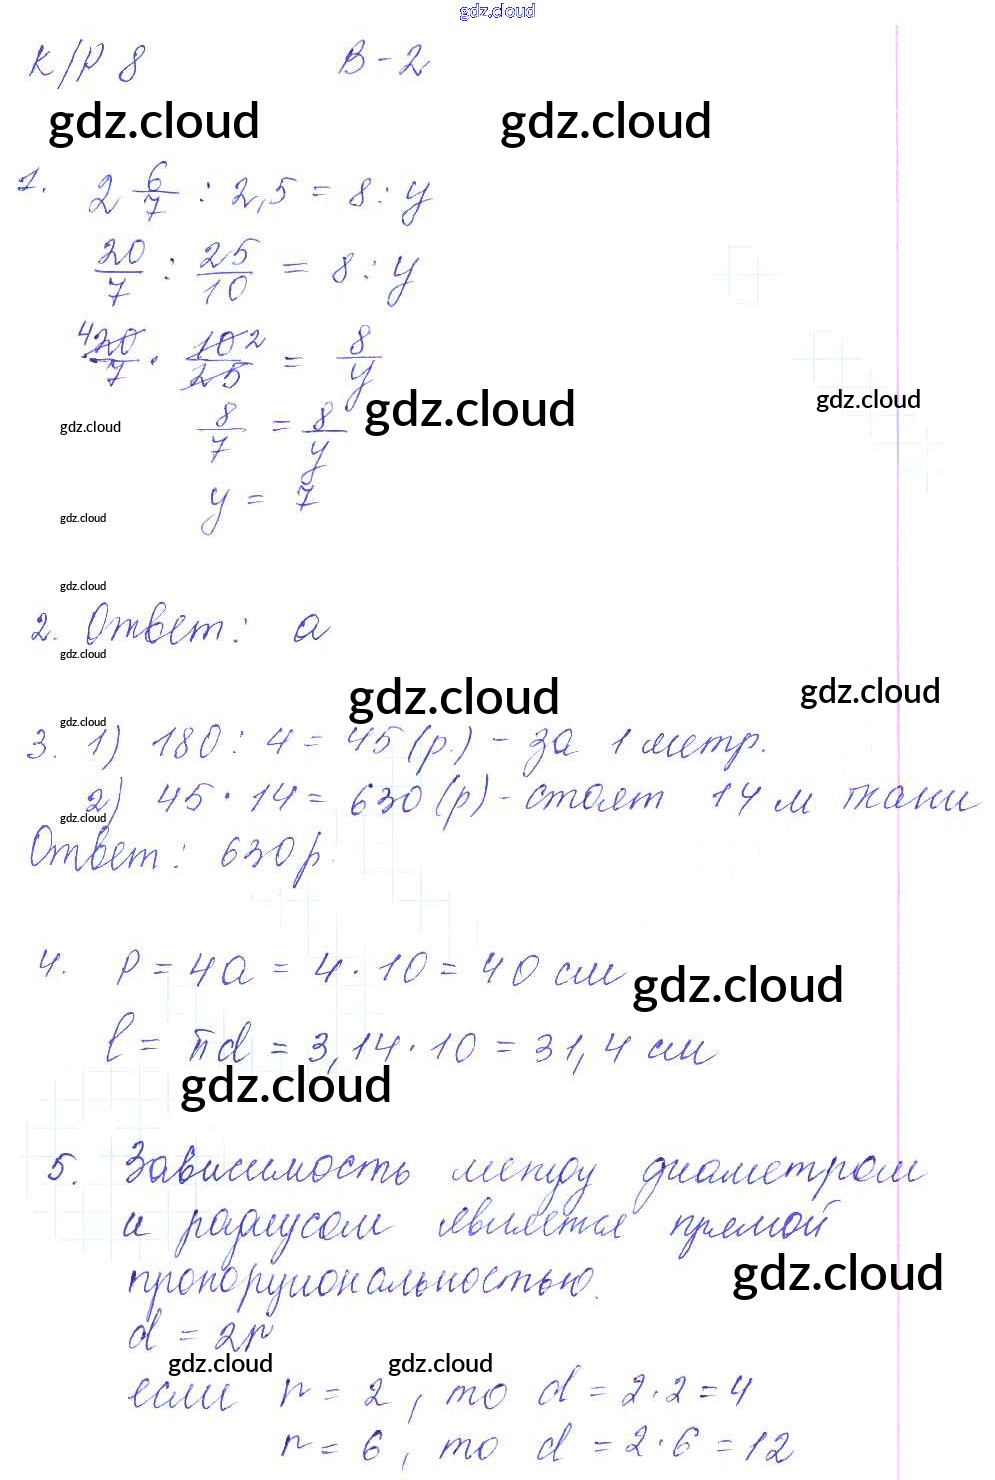 gdz.cloud
К/Р 8 В-2
gdz.cloud gdz.cloud
1. 2 6/7 : 2,5 = 8 : y
20/7 : 25/10 = 8 : y
4 20/7 · 10 2/25 = 8/y
gdz.cloud gdz.cloud
gdz.cloud 8/7 = 8/y
y = 7
gdz.cloud
gdz.cloud
2. Ответ: а
gdz.cloud
gdz.cloud gdz.cloud
gdz.cloud
3. 1) 180 : 4 = 45 (р.) - за 1 метр.
2) 45 · 14 = 630 (р) - стоят 14 м ткани
gdz.cloud
Ответ: 630 р.
4. P = 4a = 4 · 10 = 40 см
gdz.cloud
l = πd = 3,14 · 10 = 31,4 см
gdz.cloud
5. Зависимость между диаметром
и радиусом является прямой
gdz.cloud
пропорциональностью.
d = 2r
gdz.cloud gdz.cloud
если r = 2, то d = 2 · 2 = 4
r = 6, то d = 2 · 6 = 12